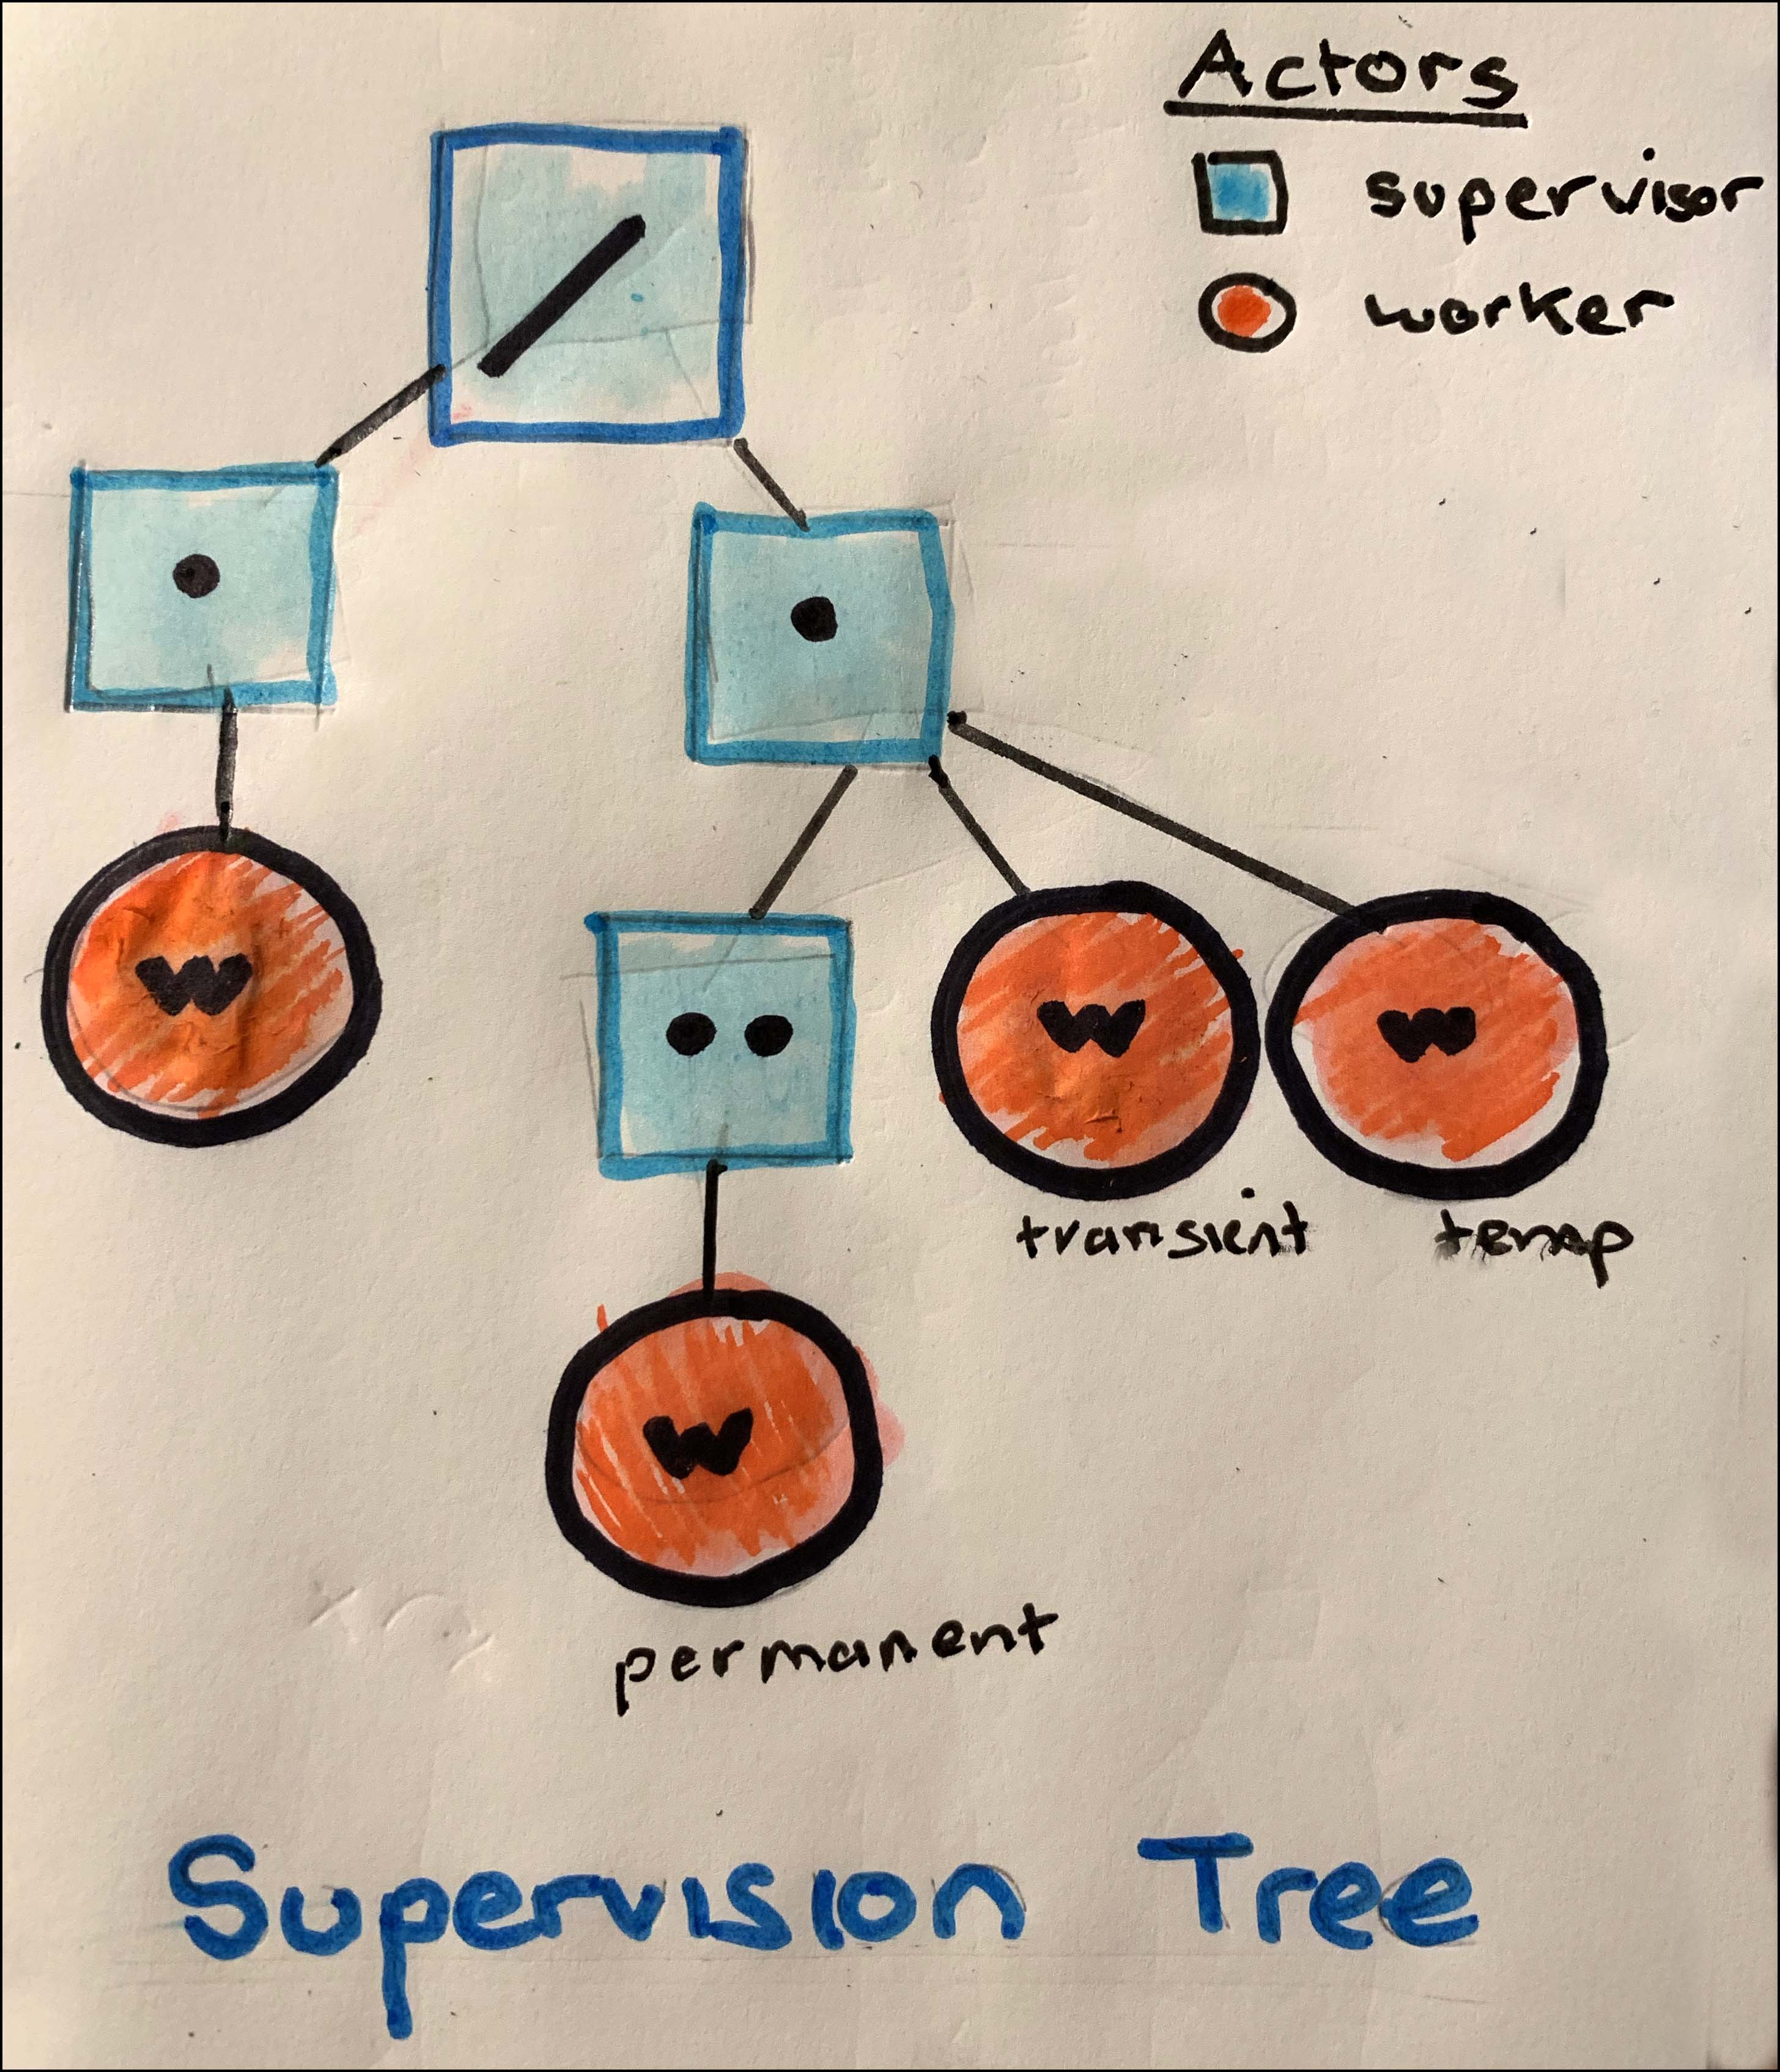 Actors
supervisor
worker
/
•
•
W
••
W
W
transient
temp
W
permanent
Supervision Tree